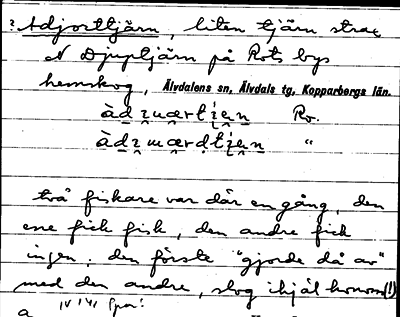 ? Adjorttjärn, liten tjärn strax
N Djuptjärn på Rots bys
hemskog, Älvdalens sn, Älvdals tg, Kopparbergs län.
Ro.
"
två fiskare var där en gång, den
ene fick fisk, den andre fick
ingen; den förste "gjorde då av"
med den andre, slog ihjäl honom(!)